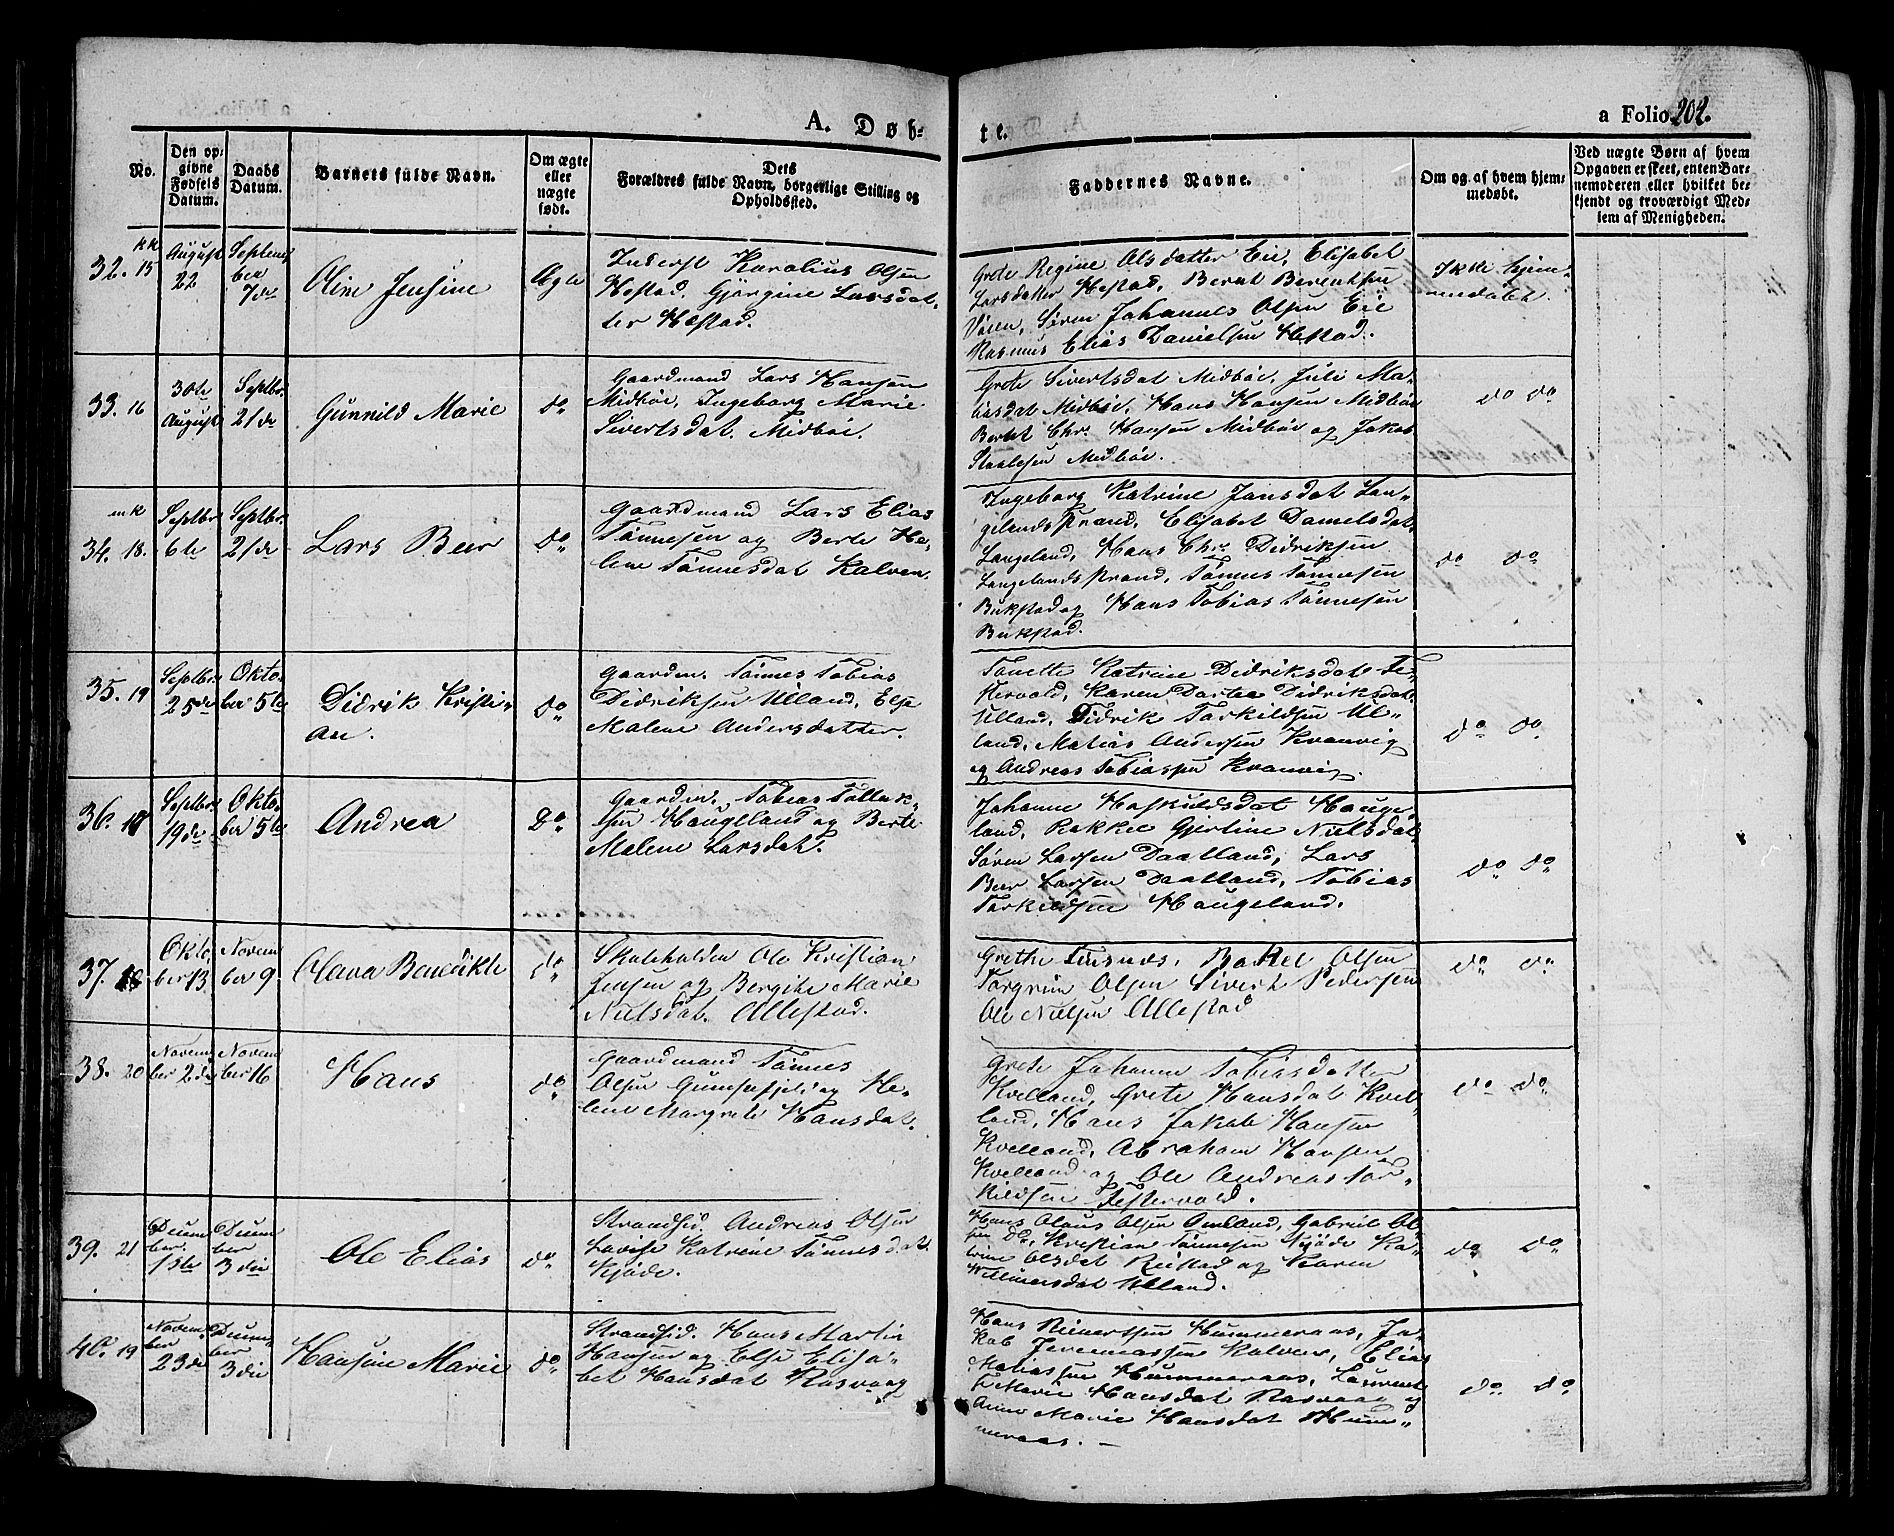 A. Døb-
te.
a Folio 202.
No.
Den op-
givne
Fødsels
Datum.
Daabs
Datum.
Barnets fulde Navn.
Om ægte
eller
uægte
født.
Dets
Forældres fulde Navn, borgerlige Stilling og
Opholdssted.
Faddernes Navne.
Om og af hvem hjem-
medøbt.
Ved uægte Børn af hvem
Opgaven er skeet, enten Bar-
nemoderen eller hvilket be-
kjendt og troværdigt Med-
lem af Menigheden.
32. 15
August
22
Septem
ber
7de
Oline Jensine
Ægte
Inderst Karolius Olsen
Hestad, Gjørgine Larsdat-
ter Hestad.
Grete Regine Olsdatter Eie, Elisabet
Larsdatter Hestad, Bernt Berentsen
Vöien, Sören Johannes Olsen Eie
Rasmus Elias Danielsen Hestad.
Ikke hjem-
medöbt.
33. 16
30te
August
Septbr.
21de
Gunnild Marie
do
Gaardmand Lars Hansen
Midböe, Ingeborg Marie
Sivertsdat. Midböe.
Grete Sivertsdat Midböe, Juli Ma-
tiasdat Midböe, Hans Hansen Midböe
Bernt Chr. Hansen Midböe og Jakob
Staalesen Midböe.
do do
mk
34. 18.
Septbr.
6te
Septbr.
21de
Lars Beer
do
Gaardmand Lars Elias
Tönnesen og Berte He-
lene Tönnesdat Kalven.
Ingeborg Katrine Jansdat Lan-
gelandsstrand, Elisabet Danielsdat
Langeland, Hans Chr. Didriksen
Langelandsstrand, Tönnes Tönnesen
Bukstad og Hans Tobias Tönnesen
Bukstad.
do do
35. 19
Septbr.
25de
Okto-
ber 5te
Didrik Kristi-
an.
do
Gaardm. Tönnes Tobias
Didriksen Ulland, Else
Malene Andersdatter.
Tonette Katrine Didriksdat Fe-
stervold, Karen Dortea Didriksdat
Ulland, Didrik Torkildsen Ul-
land, Matias Andersen Kvanvig
og Andreas Tobiassen Kvanvig.
do do
36.
Septbr.
19de
Okto-
ber 5te
Andrea
Do
Gaardm. Tobias Tollak-
sen Haugeland og Berte
Malene Larsdat.
Johanne Hoskuldsdat Hauge-
land, Gjertine Nielsdat
Sören Larsen Daatland, Lars
Beer Larsen Daatland, Tobias
Torkildsen Haugeland.
do do
37. 18
Okto
ber 13
Novem
ber 9
Olava Benedikte
do
Skoleholder Ole Kristian
Jensen og Bergite Marie
Nielsdat. Allestad.
Grethe Olsen
Torgrim Olsen Sivert Pedersen
Ole Nielsen Allestad
do do
38. 20
Novem
ber 2de
Novem
ber 16
Hans
do
Gaardmand Tönnes
Olsen Gumsefjeld og He-
lene Margrete Hansdat.
Grete Johanne Tobiasdatter
Kvelland, Grete Hansdat Kvel-
land, Hans Jakob Hansen
Kvelland, Abraham Hansen
Kvelland og Ole Andreas Tor-
kildsen Festervold.
do do
39. 21
ber.
Decem
ber
3die
Ole Elias
do
Strandsid. Andreas Olsen
Lovise Katrine Tönnesdat.
Skjöde.
Hans Olaus Olsen Omland, Gabriel Ol-
sen Do, Kristian Tönnesen Skjöde Ka-
trine Olsdat Reistad og Karen
Villumsdat Ulland.
do do
40. 19
Novem-
ber
23de
Decem-
ber
3die
Hansine Marie
do
Strandsid. Hans Martin
Hansen og Else Elisa-
bet Hansdat Rasvaag
Hans Reinertsen Hummeraas, Ja-
kob Jeremiassen Kalven, Elias
Matiassen Hummeraas, Laurent-
se Marie Hansdat Rasvaag og
Anne Marie Hansdat Hum-
meraas.
do do